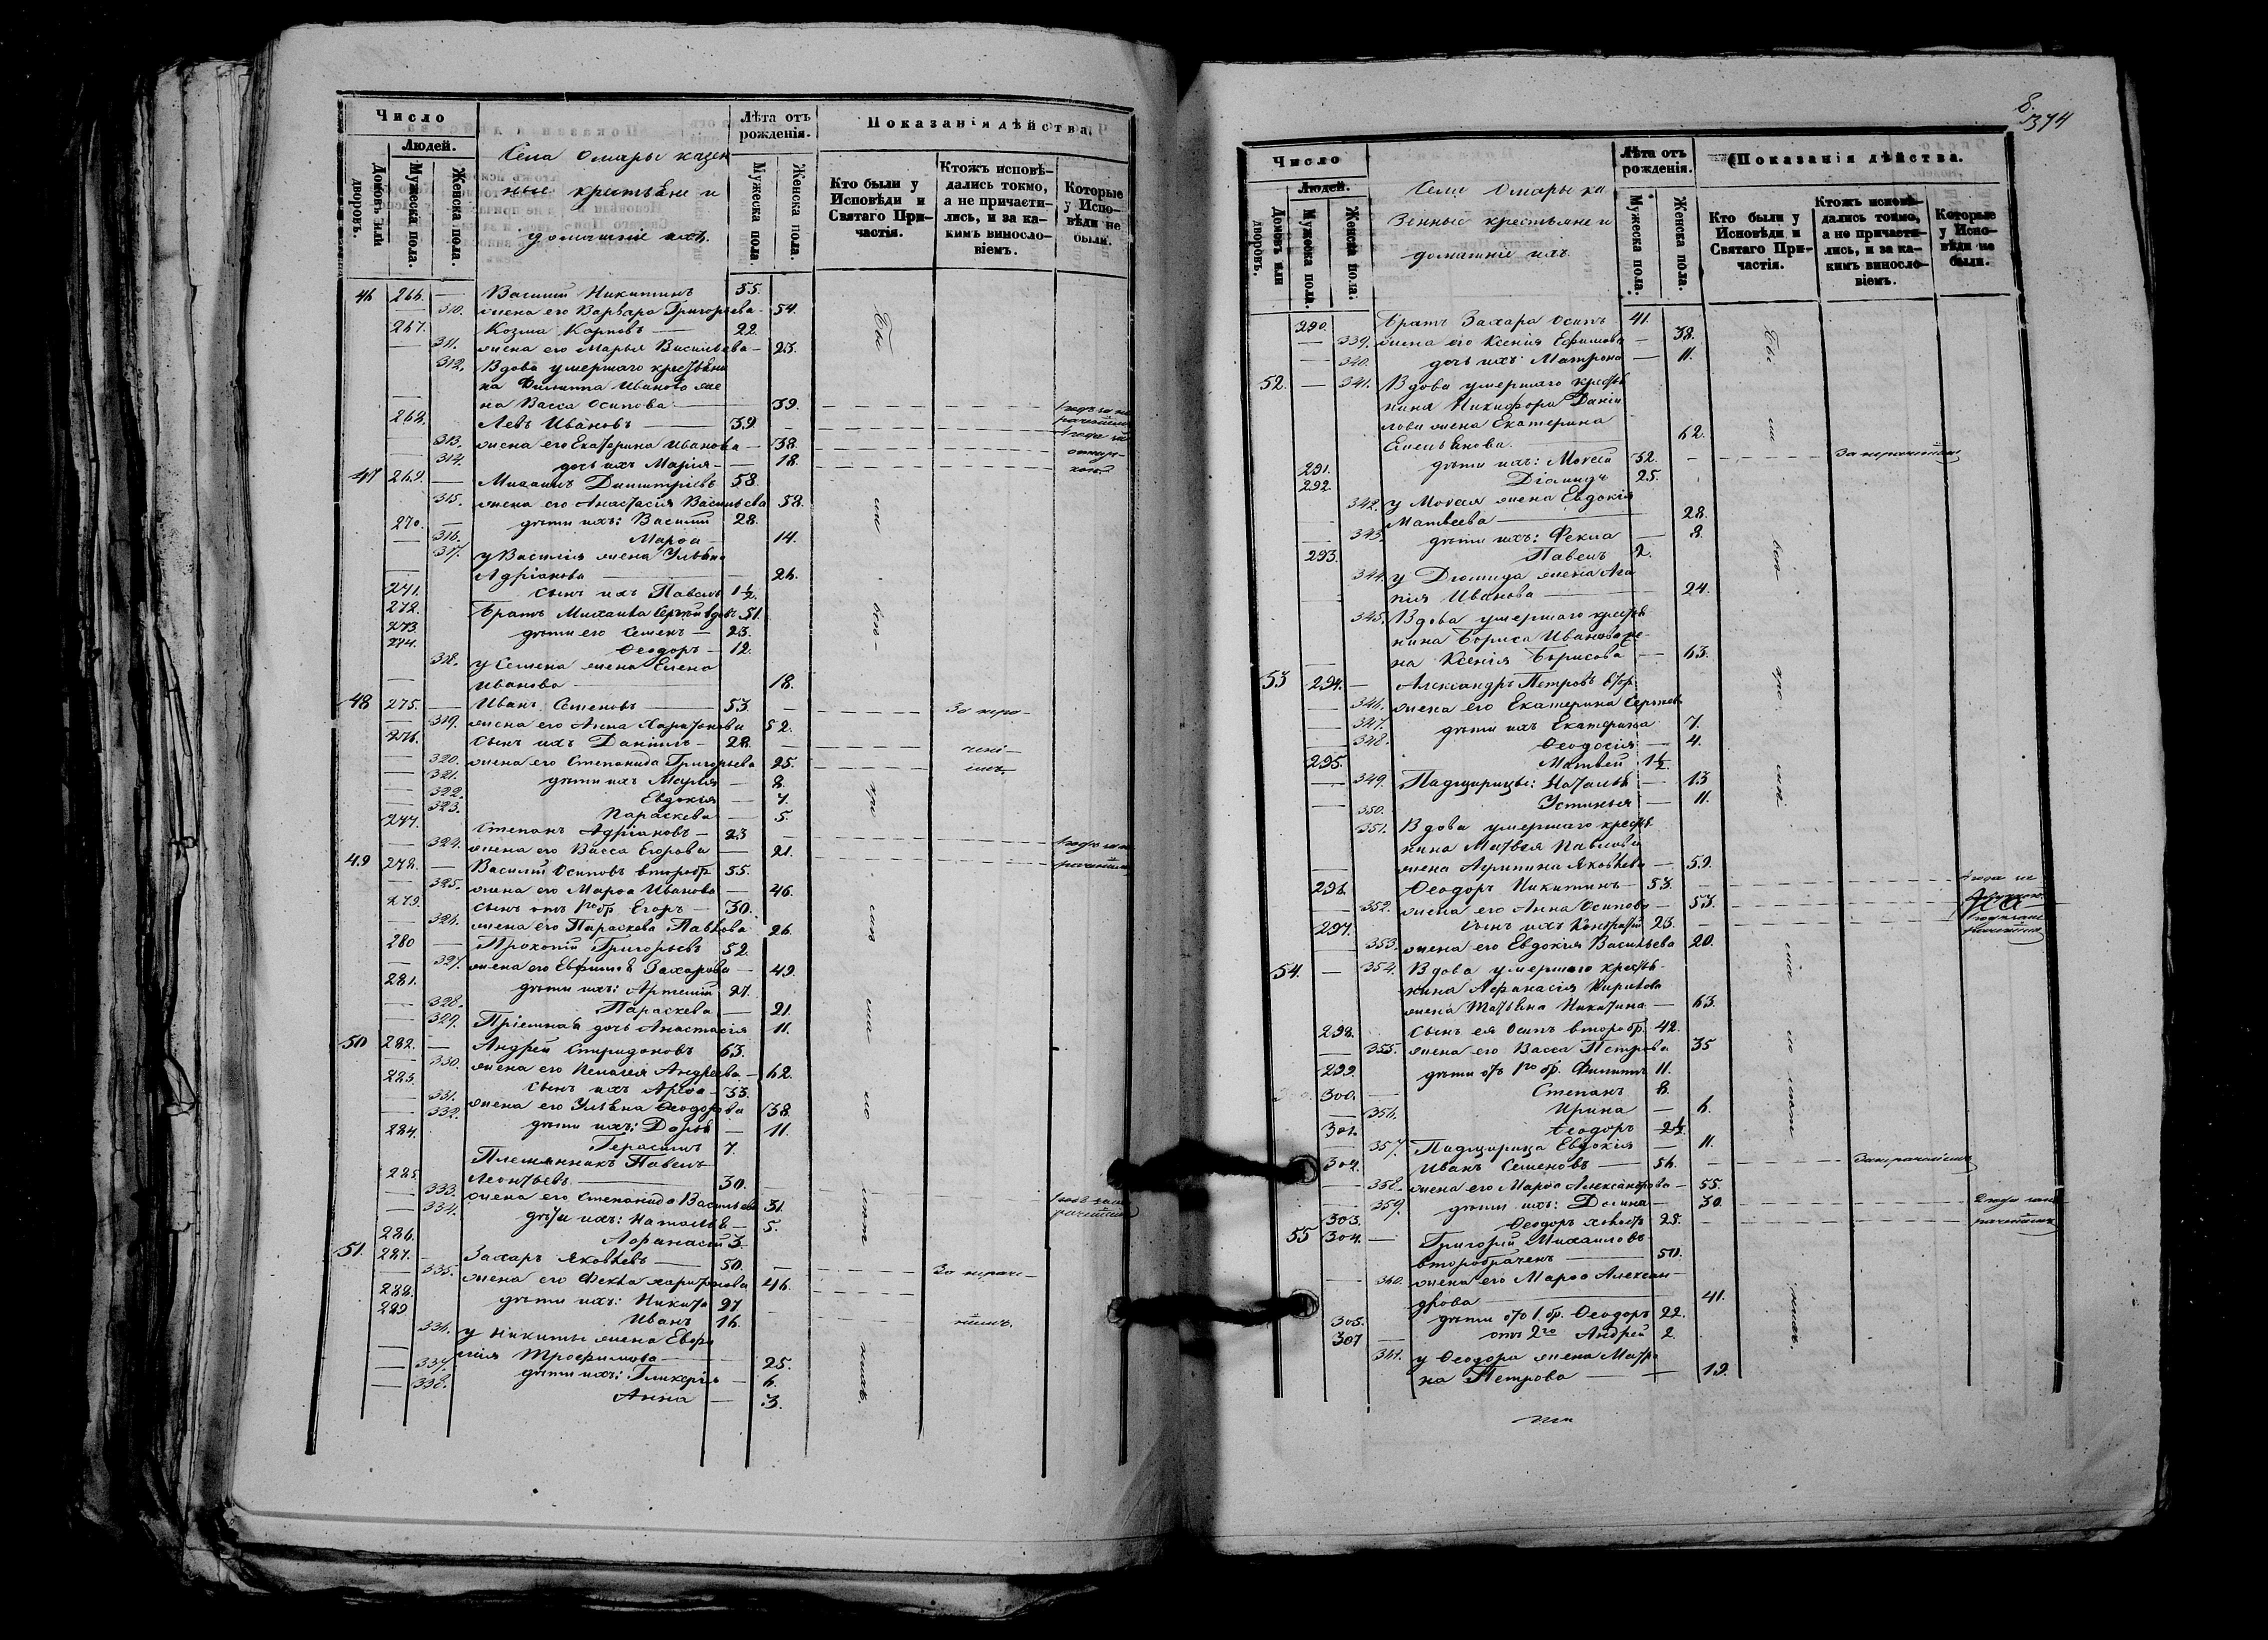 Число
Людей.
Домовъ или дворовъ.
Мужеска пола.
Женска пола.
Села Омары казен
ные крестьяне и
домашніе ихъ.
Лѣта отъ рожденія.
Мужеска пола.
Женска пола.
Показанія дѣйства.
Кто были у Исповѣди и Святаго Причастія.
Ктожъ исповѣдались токмо, а не причастились, и за какимъ винословіемъ.
Которые у Исповѣди не были.
46 266. — Василій Никитинъ 55.
310. жена его Варвара Григорьева 54.
267. Козма Карповъ — 22.
311. жена его Марья Васильева — 23.
312. Вдова умершаго крестьяни
на Филиппа Иванова же
на Васса Осипова — 39.
268. Левъ Ивановъ — 39
313. жена его Екатерина Иванова — 38.
314. дочь ихъ Марія — 18.
47 269. — Михаилъ Димитріевъ 58.
315. жена его Анастасія Васильева 58.
270. — дѣти ихъ: Василій 28.
316. Марѳа — 14.
317. у Василія жена Ульяна
Адріанова — 26.
271. сынъ ихъ Павелъ 1½.
272. Братъ Михаила Сергѣй вдовъ 51.
273. дѣти его Семенъ — 23.
274. Ѳеодоръ — 12.
318. у Семена жена Елена
Иванова — 18.
48 275. — Иванъ Семеновъ — 53.
319. жена его Анна Харитонова 52.
276. сынъ ихъ Даніилъ — 28.
320. жена его Степанида Григорьева 25.
321. дѣти ихъ Марія — 8.
322. Евдокія — 7.
323. Параскева — 5.
277. Степанъ Адріановъ — 23
324. жена его Васса Егорова — 21.
49 278. — Василій Осиповъ второбр 55.
325. жена его Марѳа Иванова — 46.
279. сынъ отъ 1го бр Егоръ — 30.
326. жена его Параскева Павлова 26
280 — Прокопій Григорьевъ 52.
327. жена его Евфимія Захарова — 49.
281. дѣти ихъ: Артемій 27.
328. Параскева — 21.
329. Пріемная дочь Анастасія 11.
50 282. — Андрей Спиридоновъ 63.
330. жена его Пелагея Андреева — 62.
283. сынъ ихъ Арефа — 33.
331. жена его Ульяна Ѳеодорова 38
332. дѣти ихъ: Дарья — 11.
284. Герасимъ 7.
Племянникъ Павелъ
285. Леонтьевъ — 30.
333. жена его Степанида Васильева 31.
334. дѣти ихъ: Наталья — 5.
286. Аѳанасій 3.
51. 287. — Захаръ Яковлевъ — 50.
335. жена его Фекла Харитонова 46.
288. дѣти ихъ: Никита 27
289 Иванъ 16.
336. у Никиты жена Евфи
мія Трофимова — 25.
337. дѣти ихъ: Гликерія — 6.
338. Анна — 3.
Бы
ли
За нера
чені
емъ.
За нераче
ніемъ.
8.
374
Число
Людей.
Домовъ или дворовъ.
Мужеска пола.
Женска пола.
Села Омары ка
зенные крестьяне и
домашніе ихъ.
Лѣта отъ рожденія.
Мужеска пола.
Женска пола.
Показанія дѣйства.
Кто были у Исповѣди и Святаго Причастія.
Ктожъ исповѣдались токмо, а не причастились, и за какимъ винословіемъ.
Которые у Исповѣди не были.
290. Братъ Захара Осипъ 41.
339. жена его Ксенія Ефимова — 38.
340. дочь ихъ Матрона — 11.
52. — 341. Вдова умершаго крестья
нина Никифора Даніи
лова жена Екатерина
Емельянова. 62.
291. дѣти ихъ: Моѵсей 32. За нерачені
292. Діомидъ 25.
342. у Моѵсея жена Евдокія
Матвеева — 28.
343. дѣти ихъ: Фекла — 8.
293. Павелъ 2.
344. у Диомида жена Ага
пія Иванова — 24.
345. Вдова умершаго крестья
нина Бориса Иванова же
на Ксенія Борисова — 63.
53 294. — Александръ Петровъ втор.
346. жена его Екатерина Сергеева
347. дѣти ихъ Екатерина 7.
348. Ѳеодосія — 4.
295. Матвей 1½.
349. Падщерицы: Наталья — 13
350. Устинья — 11.
351. Вдова умершаго крестья
нина Матвея Павлова
жена Агрипина Яковлева — 59.
296. Ѳеодоръ Никитинъ — 53.
352. жена его Анна Осипова — 53.
297. сынъ ихъ Кондратій 23.
353. жена его Евдокія Васильева 20.
54. — 354. Вдова умершаго крестья
нина Аѳанасія Кирилова
жена Татьяна Никитина — 63.
298. сынъ ея Осипъ второбр. 42.
355. жена его Васса Петрова 35
299. дѣти отъ 1го бр. Филиппъ 11.
300. Степанъ 8.
356. Ирина — 6.
301. Ѳеодоръ 2½.
357. Падщерица Евдокія — 11.
302. Иванъ Семеновъ — 56.
358. жена его Марѳа Александрова — 55.
359. дѣти ихъ: Домна — 30.
303. Ѳеодоръ холостъ 28.
55 304. — Григорій Михайловъ
второбраченъ — 50.
360. жена его Марѳа Алексан
дрова — 41.
305. дѣти отъ 1 бр. Ѳеодоръ 22.
307 отъ 2го Андрей 2.
361. у Ѳеодора жена Матро
на Петрова — 19.
Бы
ли